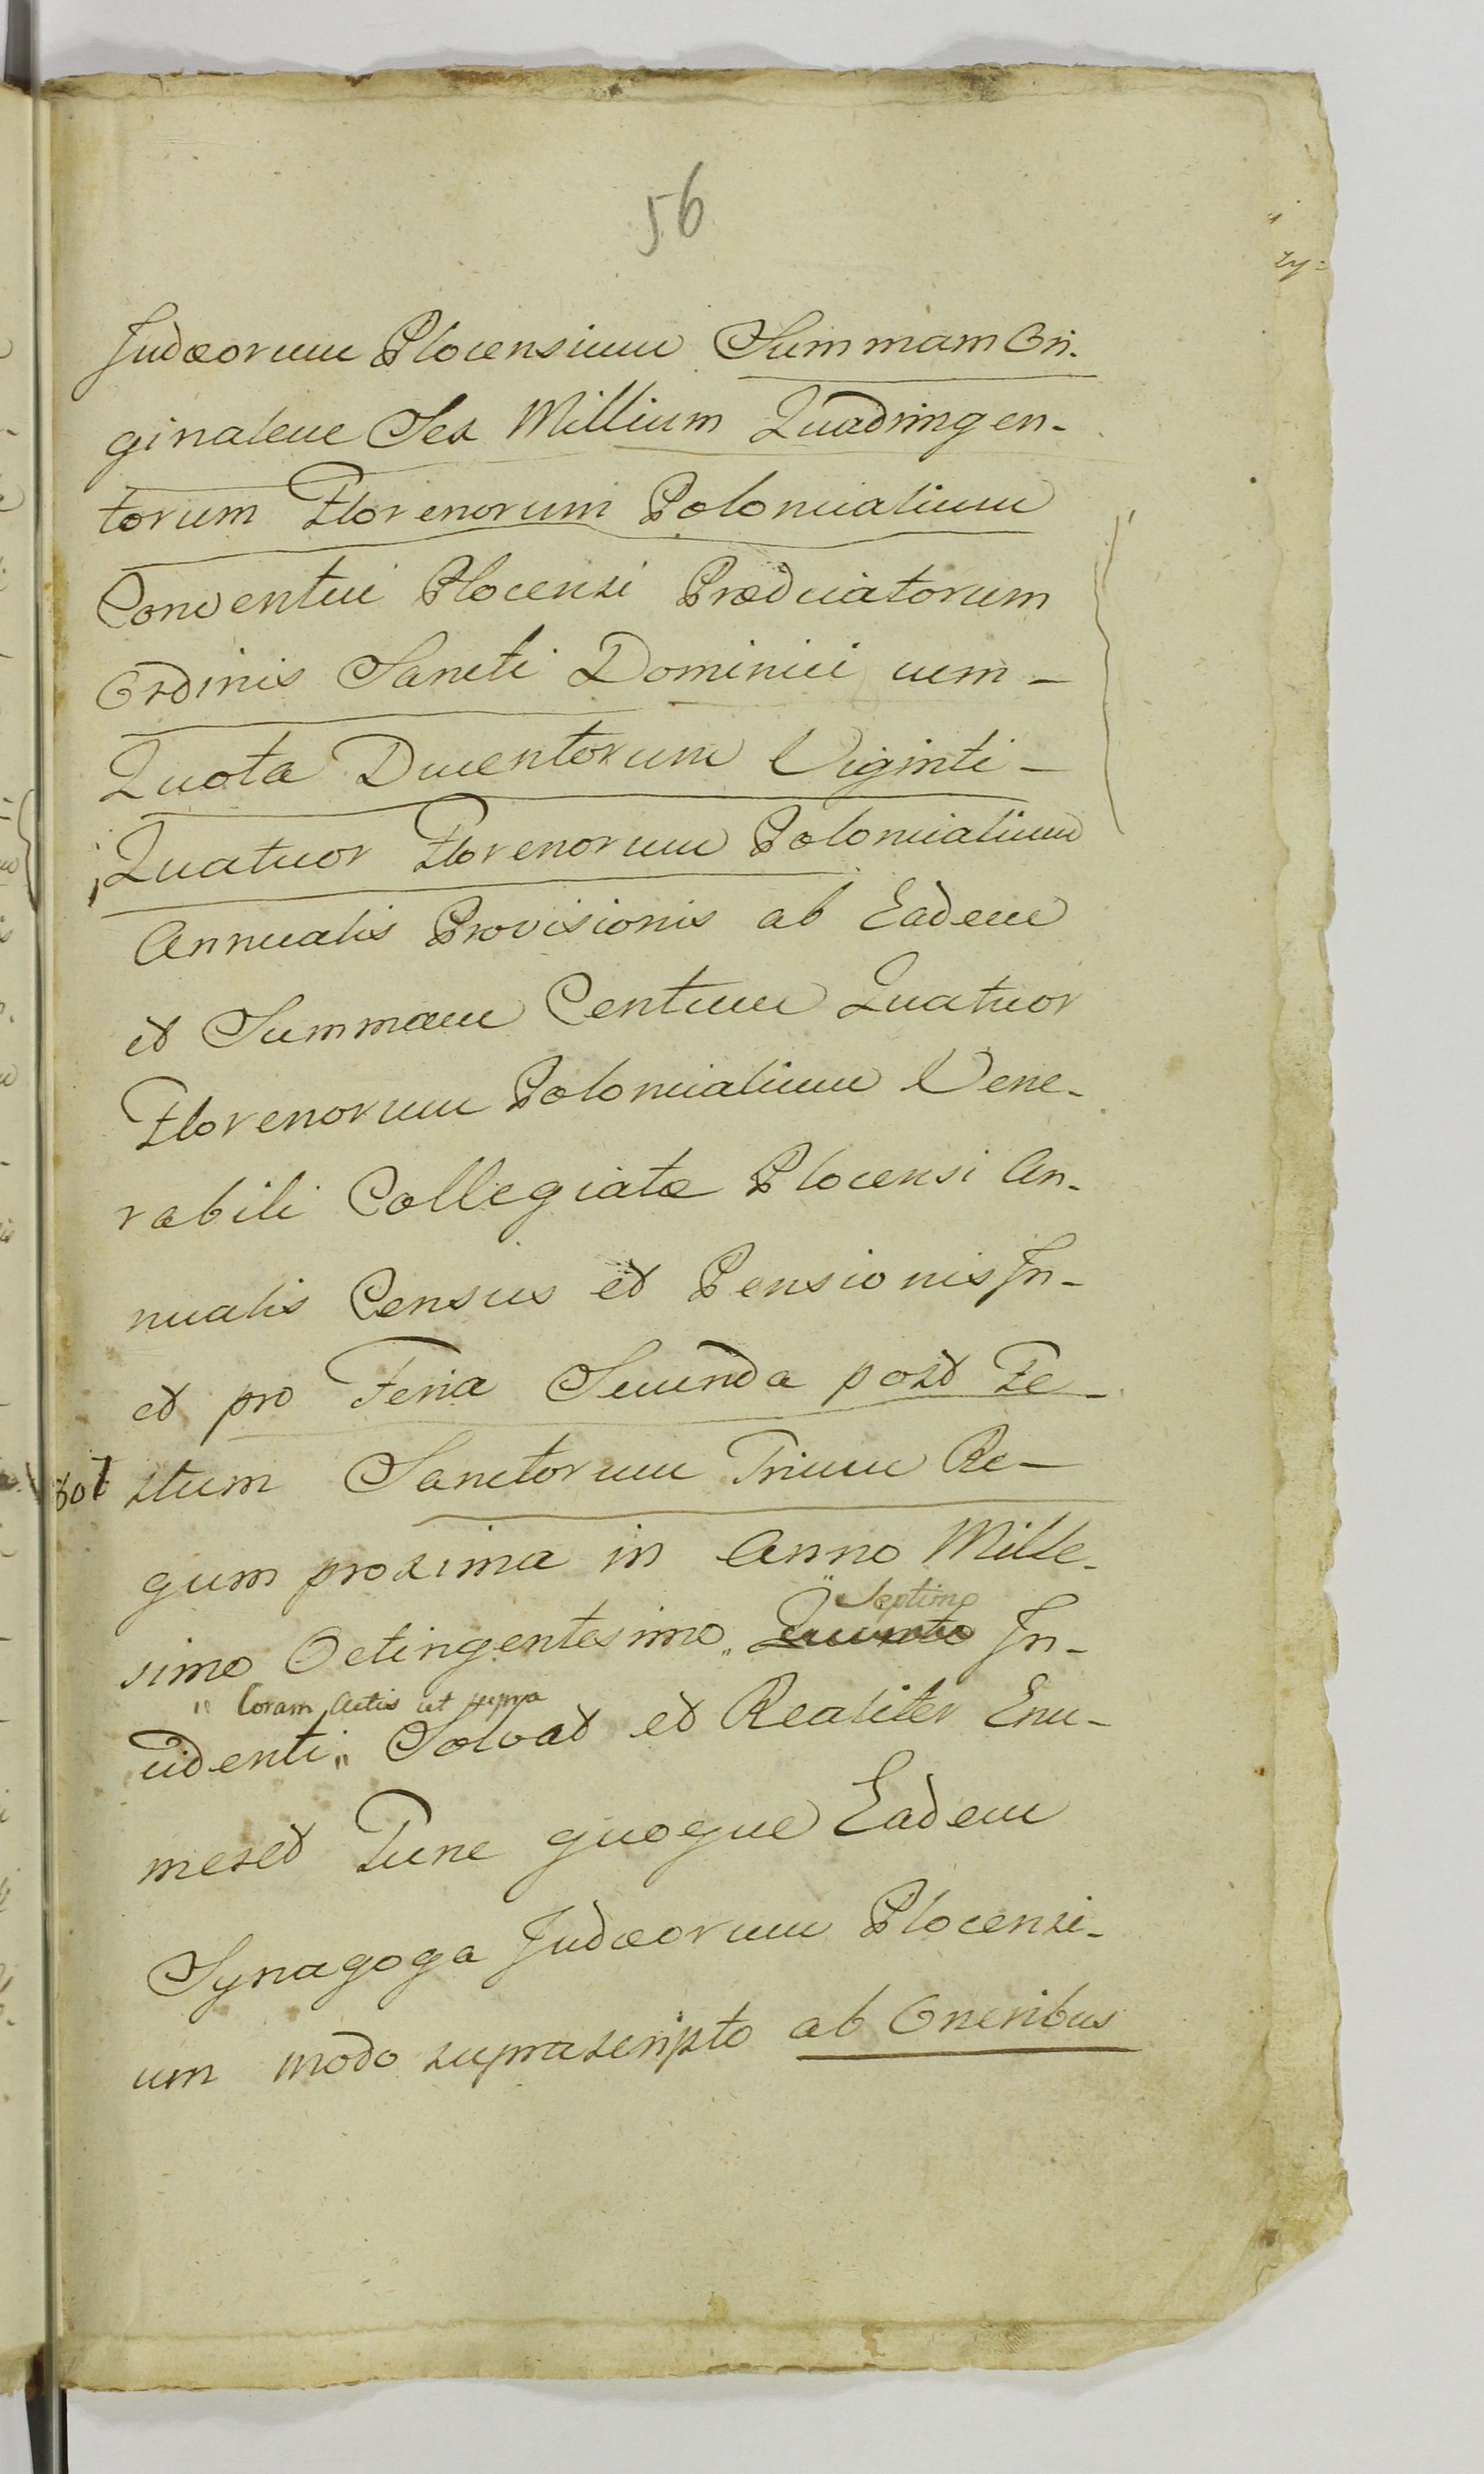 56
Judæorum Plocensium Summam Ori-
ginalem Sex Millium Quadringen-
torum Florenorum Polonicalium
Conventui Plocensi Prædicatorum
Ordinis Sancti Dominici cum -
Quota Ducentorum Viginti -
Quatuor Florenorum Polonicalium
Annualis Provisionis ab Eadem
et Summam Centum Quatuor
Florenorum Polonicalium Vene-
rabili Collegiatæ Plocensi An-
nualis Census et Pensionis In-
et pro Feria Secunda post Fe-
stum Sanctorum Trium Re-
gum proxima in Anno Mille-
simo Octingentesimo „ Quinto In-
" Septimo
cidenti „ Solvat et Realiter Enu-
" Coram Actis ut supra
meret Tunc quoque Eadem
Synagoga Judæorum Plocensi-
um modo suprascripto ab Oneribus